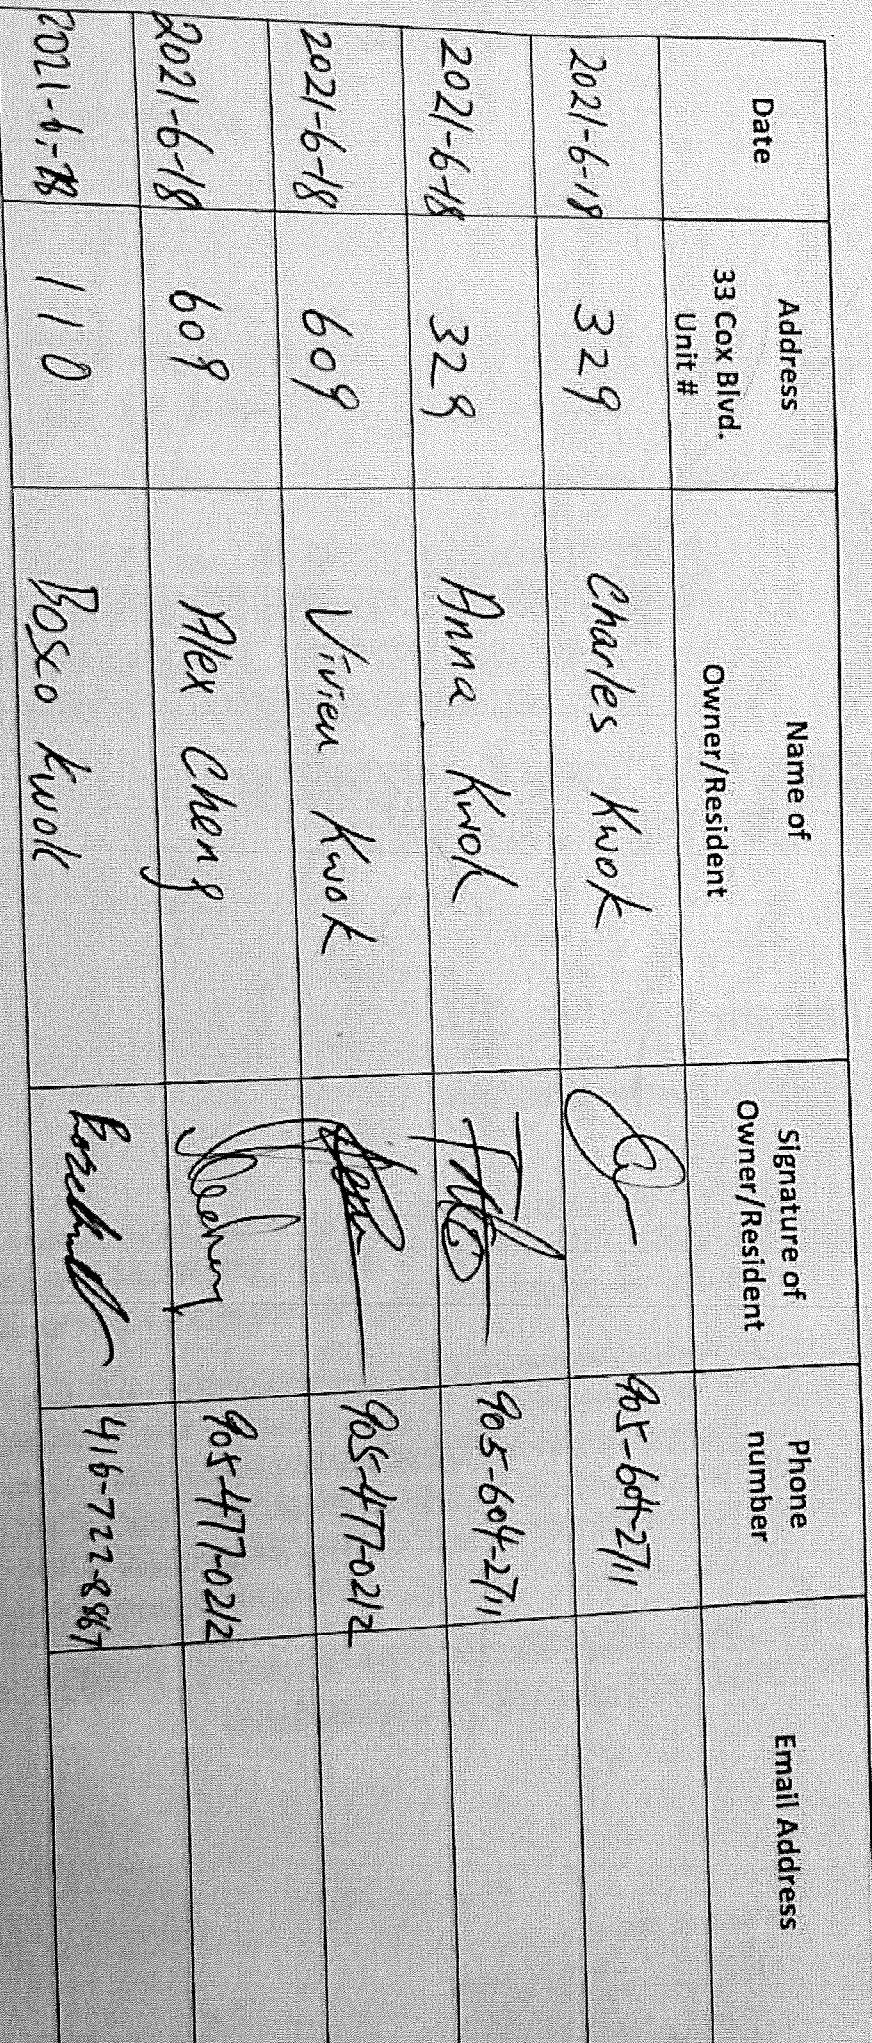 Date
Address
33 Cox Blvd.
Unit #
Name of
Owner/Resident
Signature of
Owner/Resident
Phone
number
Email Address
2021-6-18 329 Charles Kwok 905-604-2711
2021-6-18 329 Anna Kwok 905-604-2711
2021-6-18 609 Vivien Kwok 905-477-0212
2021-6-18 609 Alex Cheng 905-477-0212
2021-6-18 110 Bosco Kwok 416-727-8867